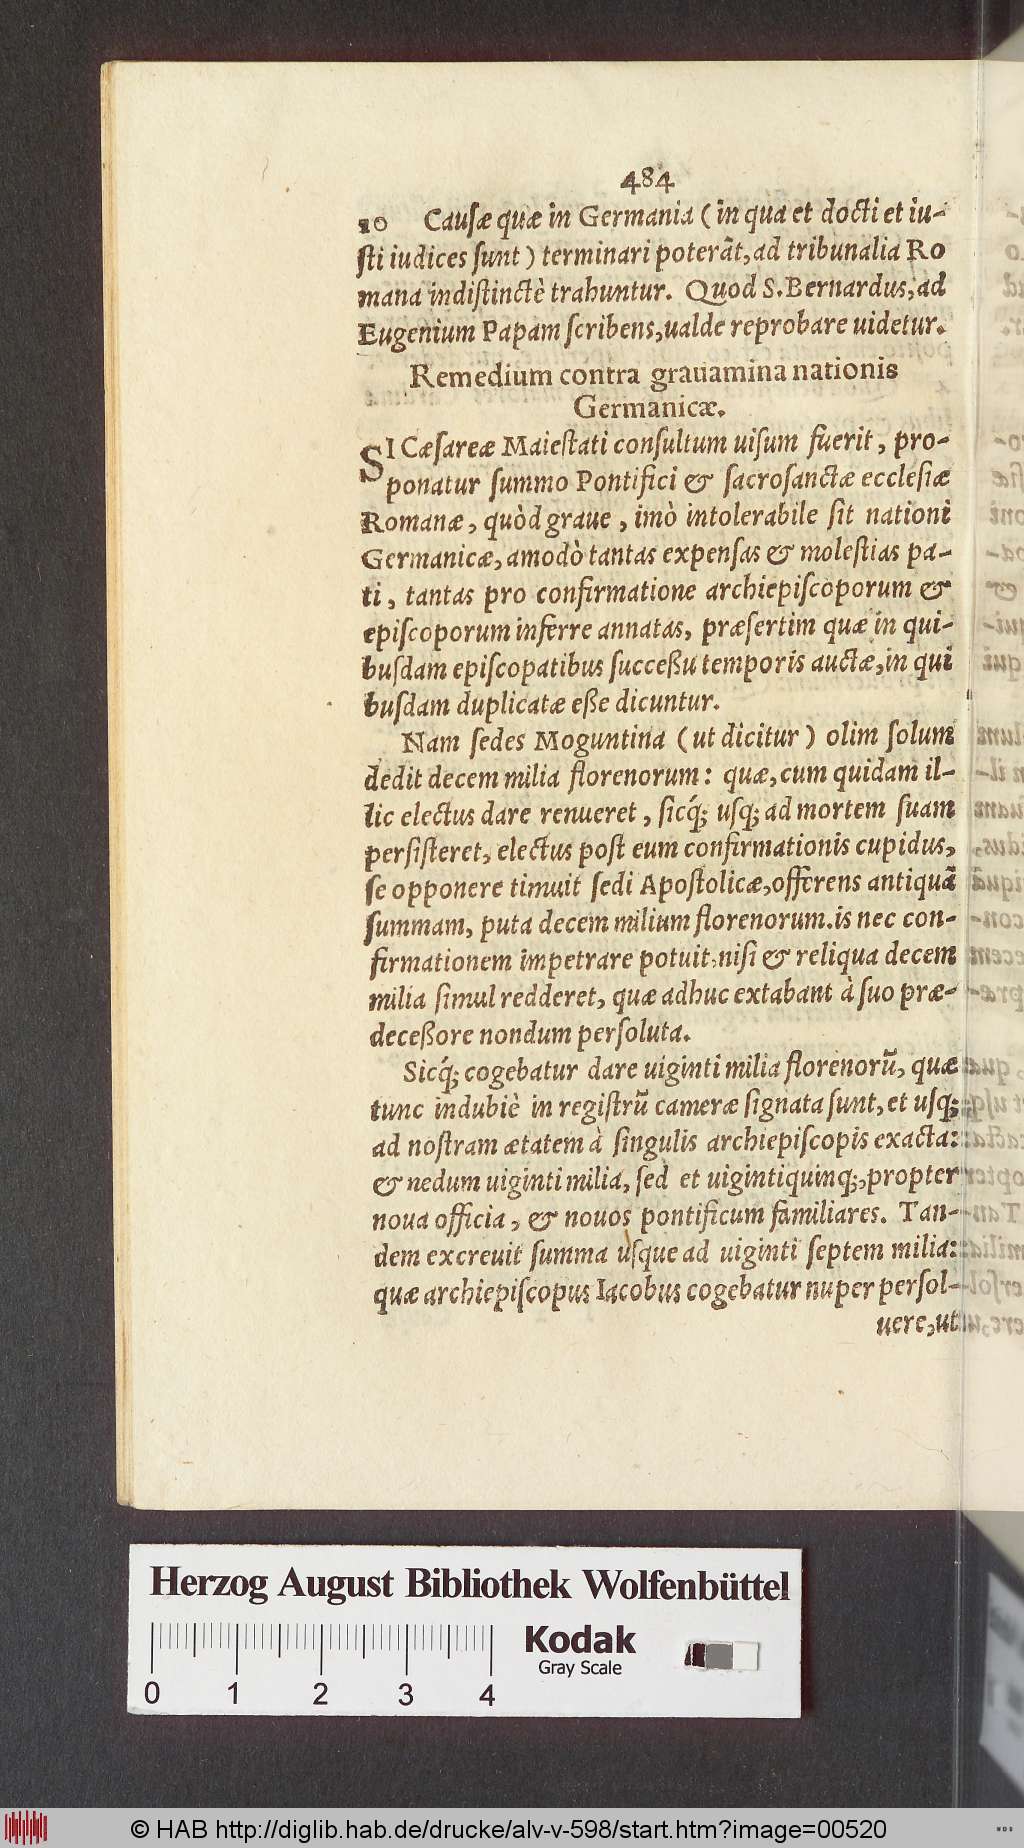 484
10 Causæ quæ in Germania (in qua et docti et iu-
sti iudices sunt) terminari poterãt, ad tribunalia Ro
mana indistinctè trahuntur. Quod S. Bernardus, ad
Eugenium Papam scribens, ualde reprobare uidetur.
Remedium contra grauamina nationis
Germanicæ.
SI Cæsareæ Maiestati consultum uisum fuerit, pro-
ponatur summo Pontifici & sacrosanctæ ecclesiæ
Romanæ, quòd graue, imò intolerabile sit nationi
Germanicæ, amodò tantas expensas & molestias pa-
ti, tantas pro confirmatione archiepiscoporum &
episcoporum inferre annatas, præsertim quæ in qui-
busdam episcopatibus succeßu temporis auctæ, in qui
busdam duplicatæ eße dicuntur.
Nam sedes Moguntina (ut dicitur) olim solum
dedit decem milia florenorum: quæ, cum quidam il-
lic electus dare renueret, sicq́; usq; ad mortem suam
persisteret, electus post eum confirmationis cupidus,
se opponere timuit sedi Apostolicæ, offerens antiquã
summam, puta decem milium florenorum. is nec con-
firmationem impetrare potuit, nisi & reliqua decem
milia simul redderet, quæ adhuc extabant à suo præ-
deceßore nondum persoluta.
Sicq́; cogebatur dare uiginti milia florenorũ, quæ
tunc indubiè in registrũ cameræ signata sunt, et usq;
ad nostram ætatem à singulis archiepiscopis exacta:
& nedum uiginti milia, sed et uigintiquinq;, propter
noua officia, & nouos pontificum familiares. Tan-
dem excreuit summa usque ad uiginti septem milia:
quæ archiepiscopus Iacobus cogebatur nuper persol-
uere, ut
Herzog August Bibliothek Wolfenbüttel
Kodak
Gray Scale
0 1 2 3 4
© HAB http://diglib.hab.de/drucke/alv-v-598/start.htm?image=00520